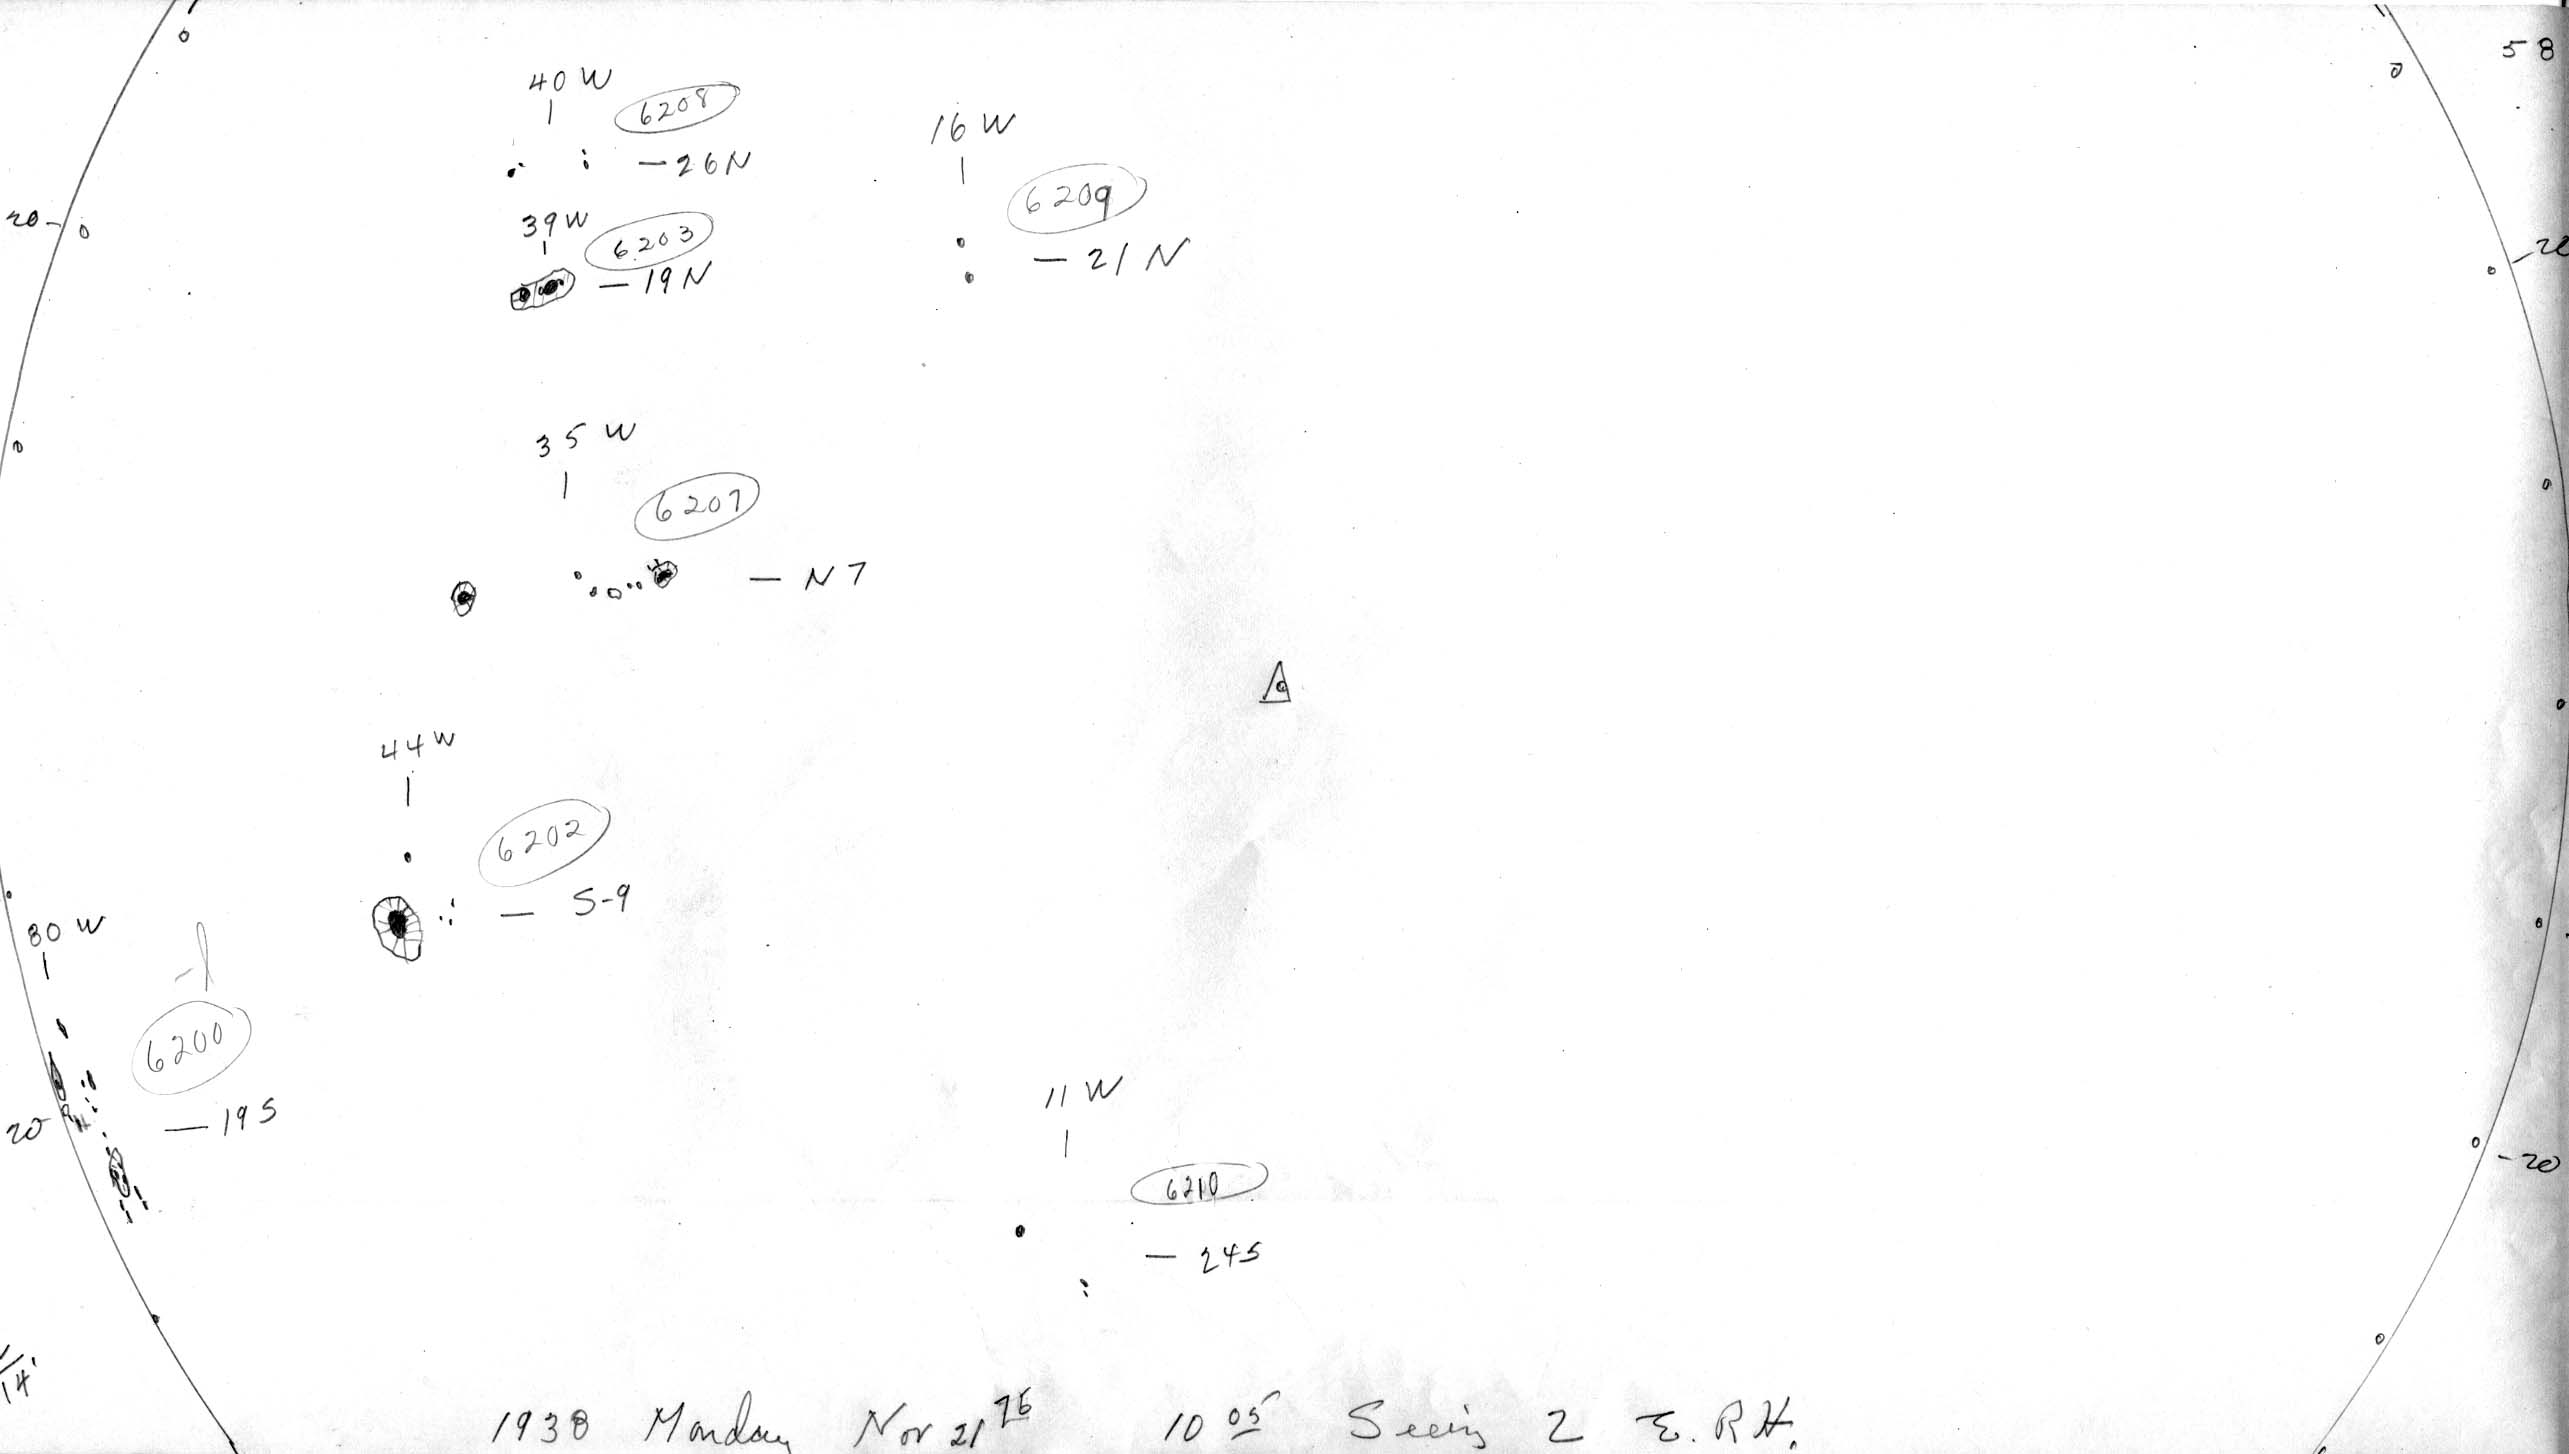 58
40 W
6208
-26N
16 W
6209
-21 N
20-
-20
39W
6203
-19N
35 W
6207
- N 7
44 W
6202
- S-9
80 W
6200
-19S
20-
-20
11 W
6210
- 24S
14
1938 Monday Nor 21 10 05 Seeing 2 E. R H.